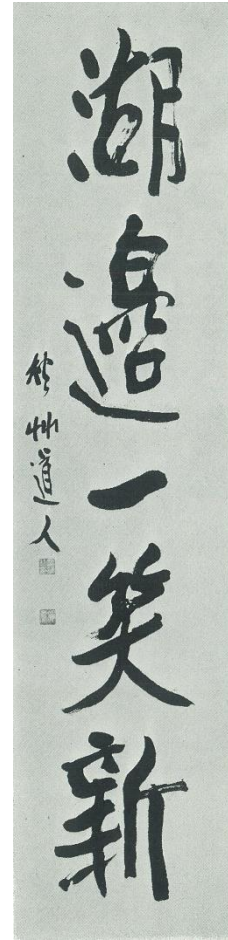 湖邊一笑新
艸道人